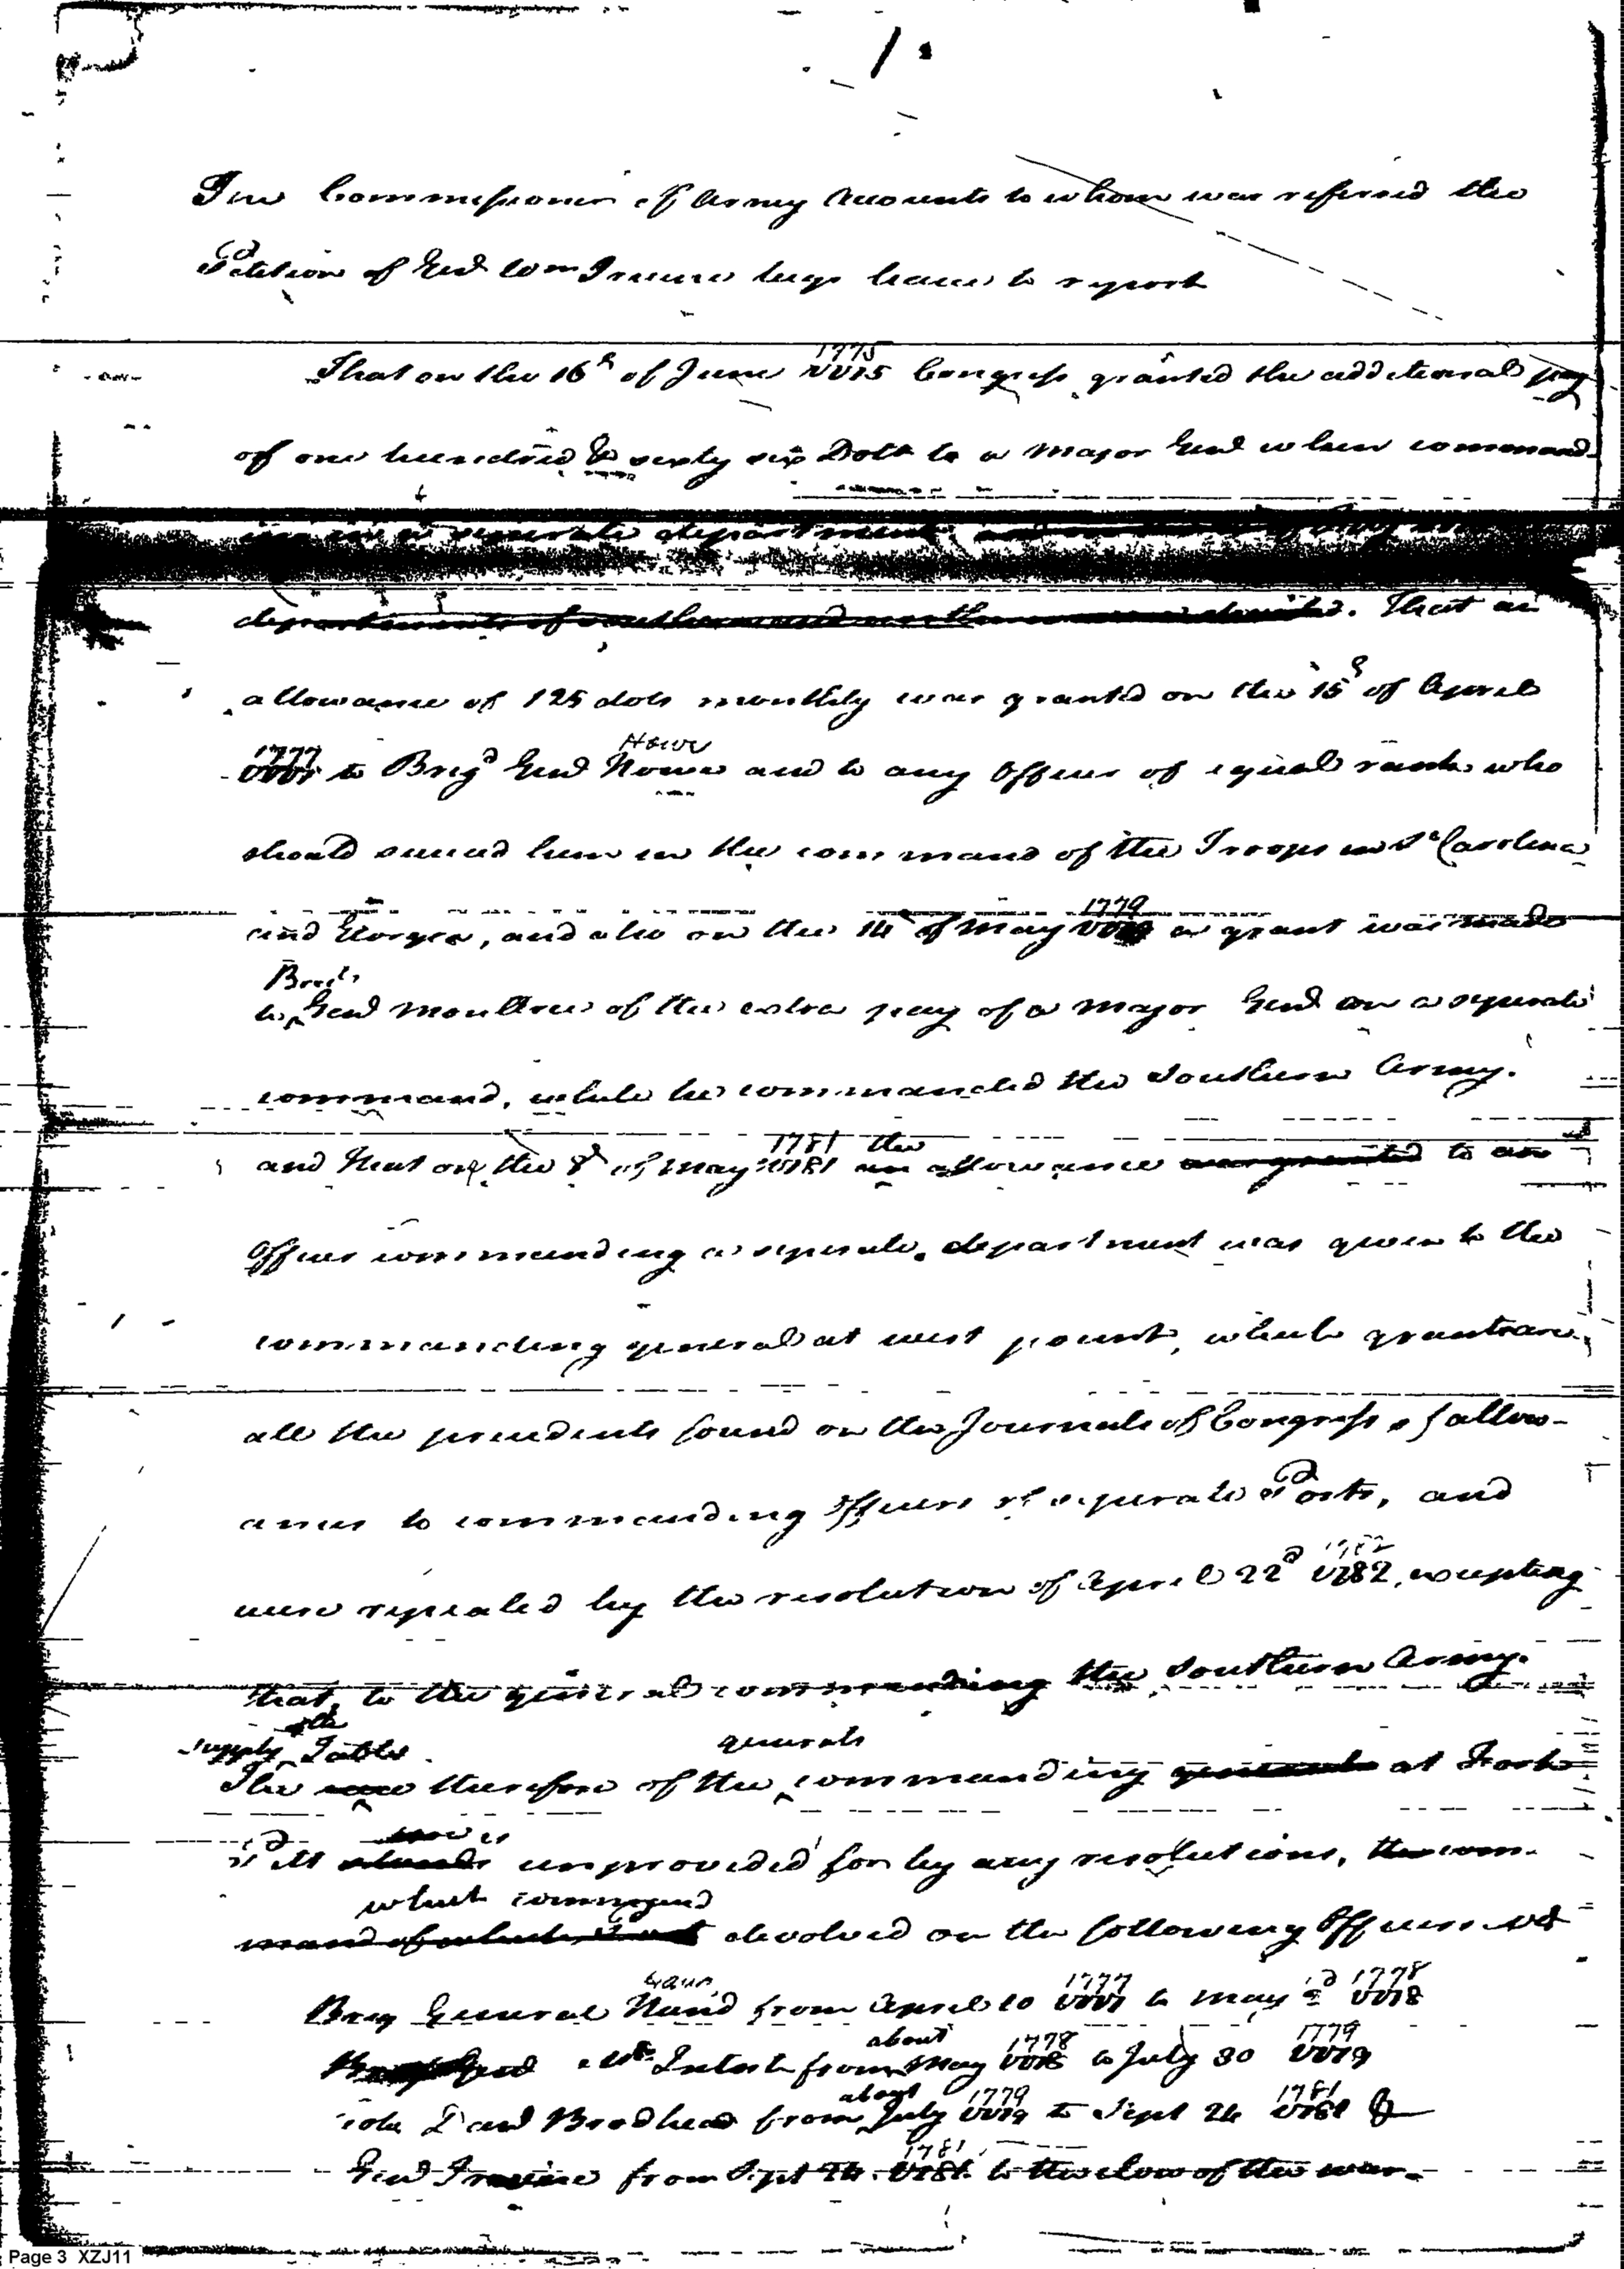 1.
The Commissioner of Army Accounts to whom was referred the
Petition of Genl Wm Irvine begs leave to report
1775
That on the 16th of June 1775 Congress granted the additional pay
of one hundred & sixty six Dolls to a Major Genl when command-
ing in a seperate department
departments of southern and northern. That an
allowance of 125 dols monthly was granted on the 15th of April
1777 Howe
1777 to Brigd Genl Howe and to any Officer of equal rank who
should succeed him in the command of the Troops in So Carolina
1779
and Georgia, and also on the 14 of May 1779 a grant was made
to Genl Moultrie of the extra pay of a Major Genl on a seperate
command, while he commanded the Southern Army.
1781 the
and that on the 8th of May 1781 an allowance was granted to an
Officer commanding a seperate department was given to the
commanding general at west point, which grants are
all the precedents found on the Journals of Congress of allow-
ances to commanding officers of seperate Posts, and
1782
were repealed by the resolution of April 22d 1782, excepting
that, to the general commanding the Southern Army.
supply Table generals
The case therefore of the commanding generals at Fort
is
Pitt stands unprovided for by any resolutions, the com-
which command
mand of which devolved on the following Officers vizt
1777 1778
Brig General Hand from April 10 1777 to May 1778
about 1778 1779
Genl McIntosh from May 1778 to July 30 1779
about 1779 1781
Colo Danl Brodhead from July 1779 to Sept 24 1781 &
1781
Genl Irvine from Sept 24. 1781 to the close of the war.
Page 3 XZJ11